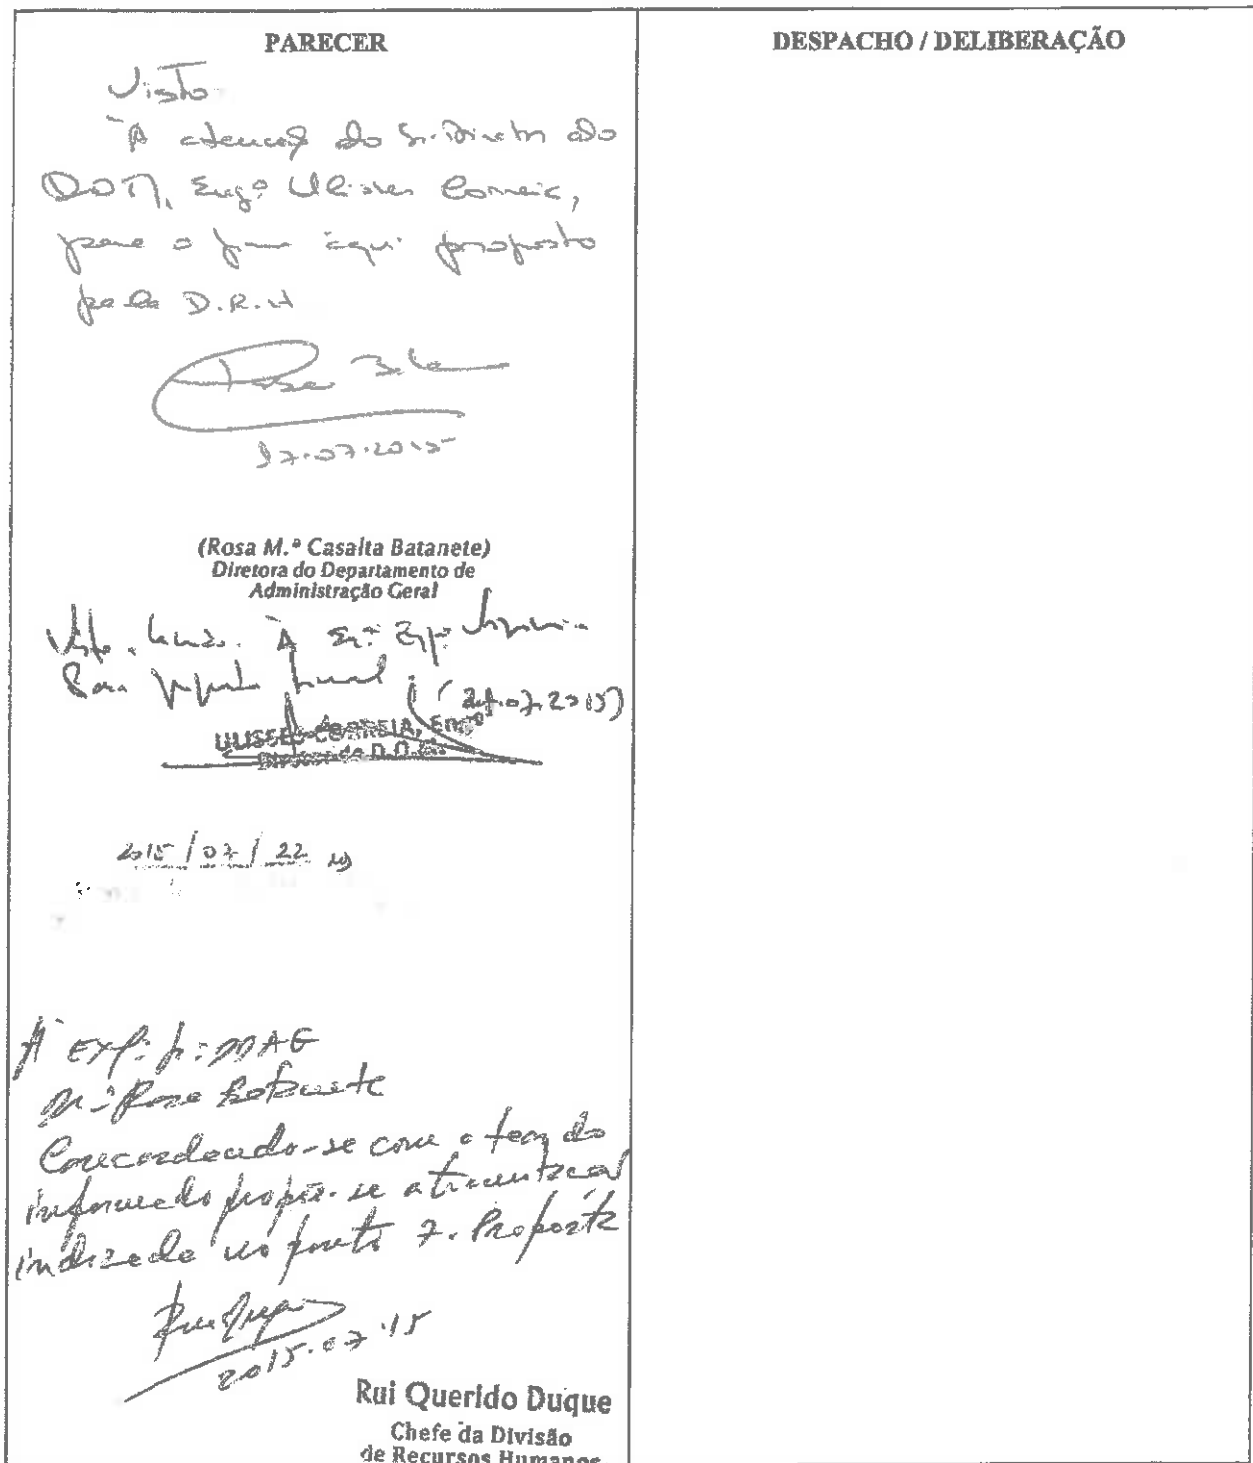 PARECER
DESPACHO / DELIBERAÇÃO
Visto
À atenção do Sr. Diretor do
DOM, Engº Ulisses Correia,
para o fim aqui proposto
pela D.R.H
Rosa
17.07.2015
(Rosa M.ª Casalta Batanete)
Diretora do Departamento de
Administração Geral
Visto. À Srª Engª
Para
07.2015)
ULISSES CORREIA, Engº
Diretor do D.O.M.
2015/07/22
À EXª. DAG
Drª Rosa Batanete
Concordando-se com o teor do
informado propõe-se a tramitação
indicada no ponto 7. Proposta
2015.07.15
Rui Querido Duque
Chefe da Divisão
de Recursos Humanos